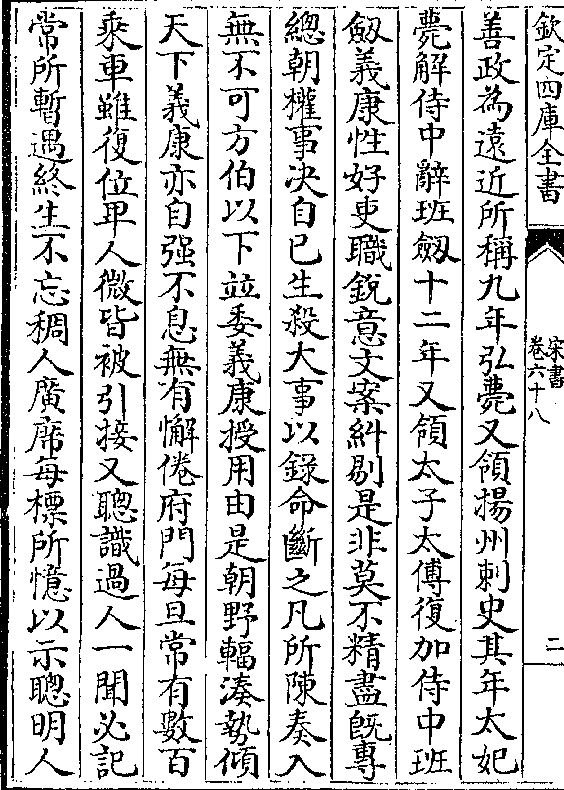 欽定四庫全書
宋書
卷六十八
二
善政為遠近所稱九年弘薨又領揚州刺史其年太妃
薨解侍中辭班劔十二年又領太子太傅復加侍中班
劔義康性好吏職銳意文案糾剔是非莫不精盡旣專
總朝權事决自己生殺大事以錄命斷之凡所陳奏入
無不可方伯以下並委義康授用由是朝野輻湊勢傾
天下義康亦自强不息無有懈倦府門每旦常有數百
乘車雖復位卑人微皆被引接又聰識過人一聞必記
常所暫遇終生不忘稠人廣席每標所憶以示聰明人